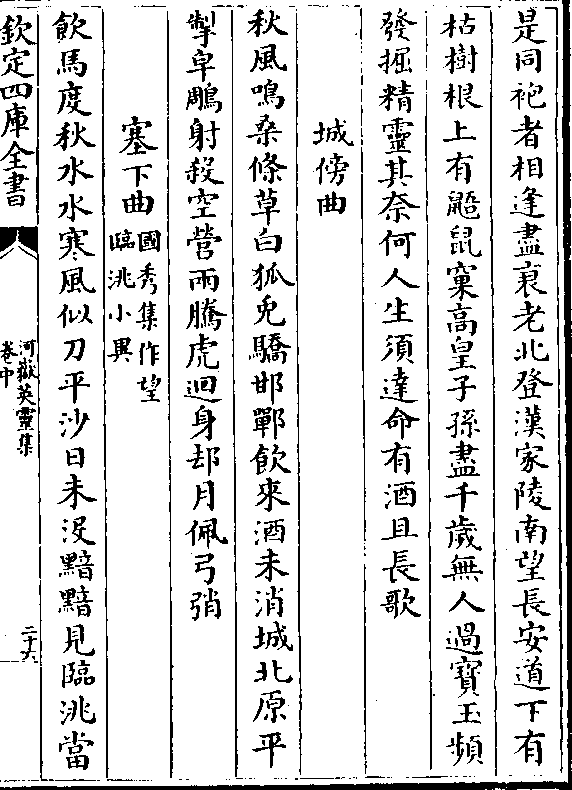 是同袍者相逢盡衰老北登漢家陵南望長安道下有
枯樹根上有鼯鼠窠高皇子孫盡千歲無人過寶玉頻
發掘精靈其奈何人生須達命有酒且長歌
城傍曲
秋風鳴桑條草白狐兎驕邯鄲飲來酒未消城北原平
掣皁鵰射殺空營兩騰虎迴身却月佩弓弰
塞下曲國秀集作望臨洮小異
飲馬度秋水水寒風似刀平沙日未沒黯黯見臨洮當
欽定四庫全書
河嶽英靈集
卷中
二十六